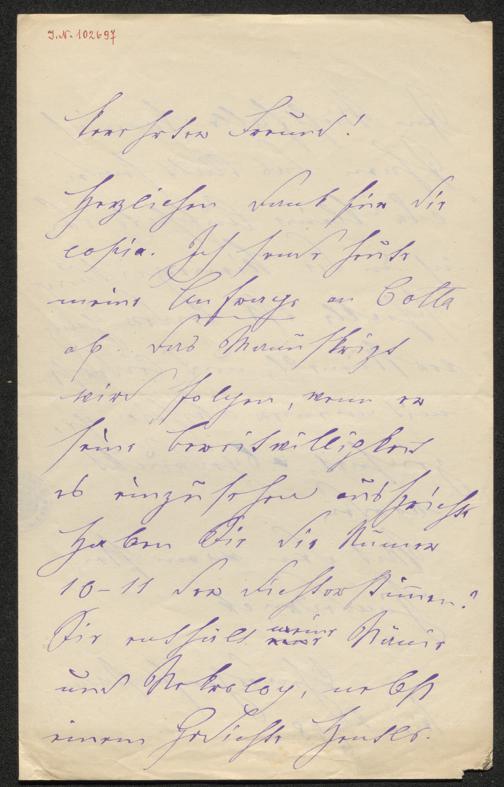 J.N. 102697
Verehrter Freund!
Herzlichen Dank für die
Copia. Ich sende heute
meine Anfrage an Cotta
ab. Das Manuskript
wird folgen, wenn er
seine Bereitwilligkeit
es einzusehen ausspricht
Haben Sie die Numer
10-11 der Dichterstimmen?
Sie enthält meine Nänie
und Nekrolog, nebst
einem Gedichte